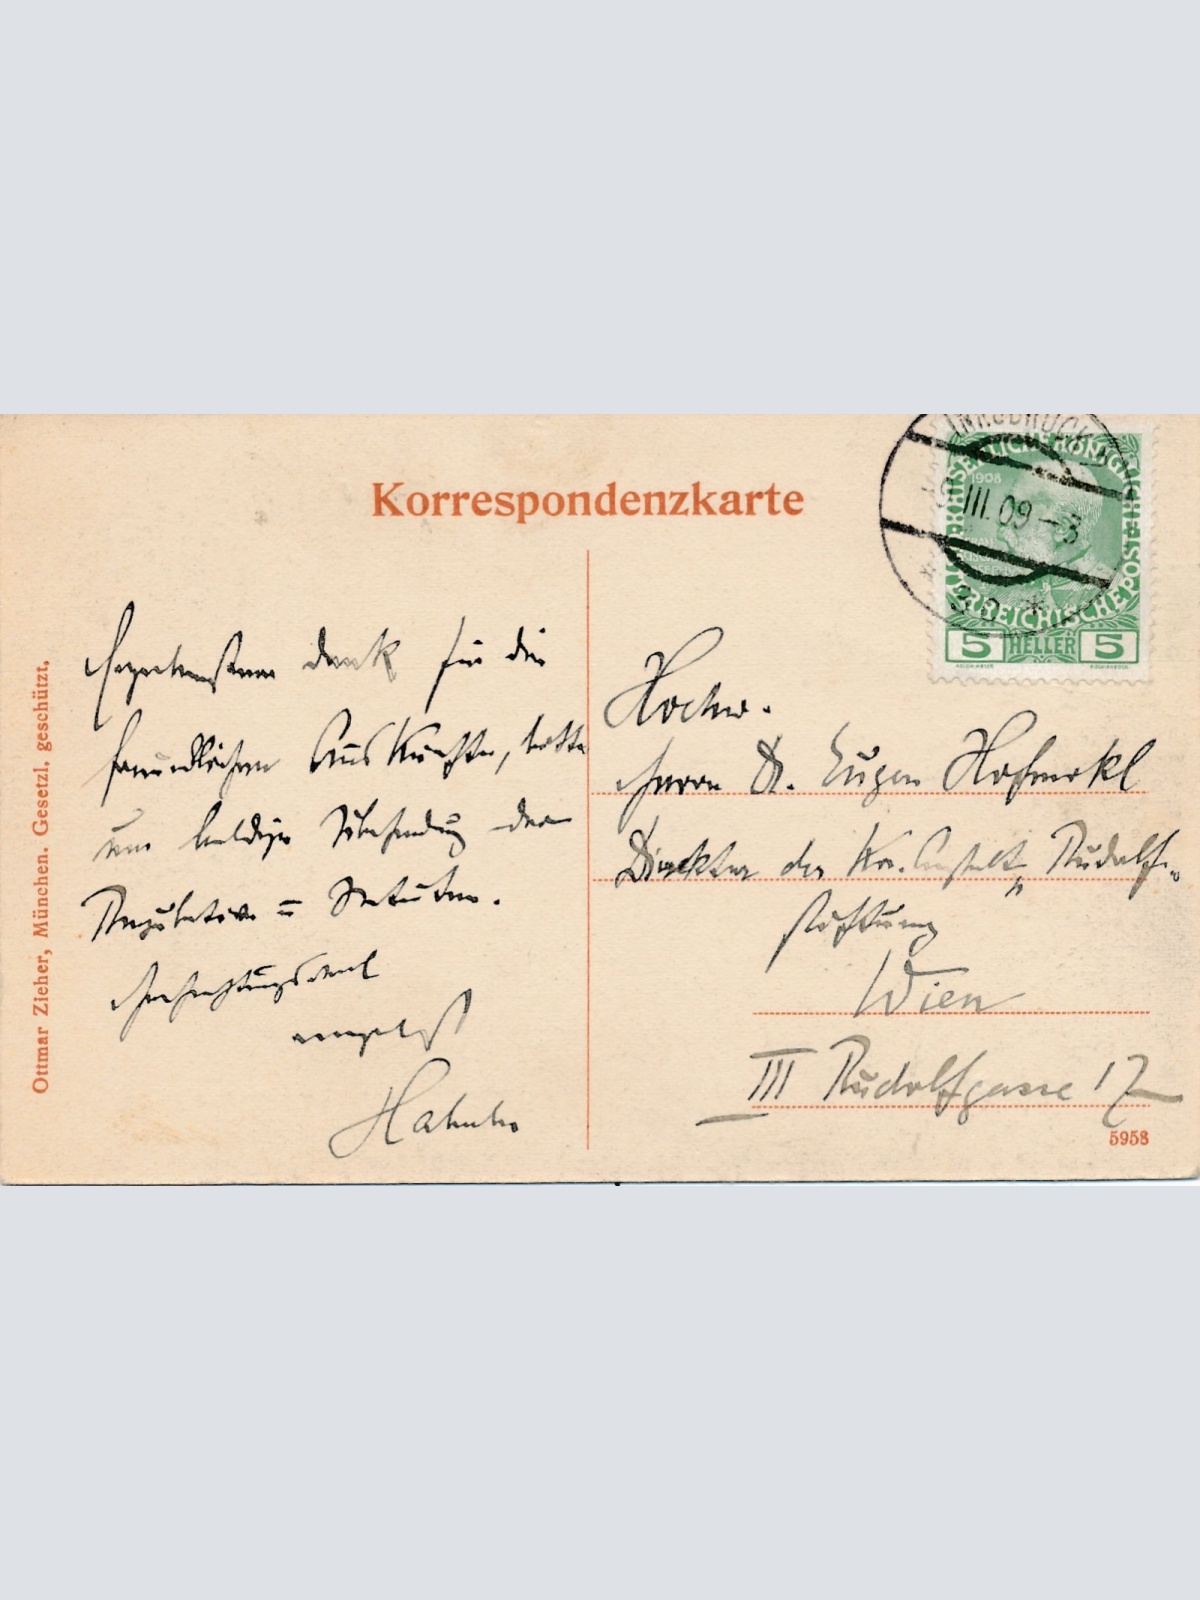 Korrespondenzkarte
INNSBRUCK
III. 09 - 3
KAISERLICHE KÖNIGLICHE ÖSTERREICHISCHE POST
1908
5 HELLER 5
Ergebensten Dank für die
freundlichen Auskünfte, bitte
um baldige Übersendung der
Regulative = Statuten.
Hochachtungsvoll
Hochw.
Herrn Dr. Eugen Hofmokl
Direktor der Kr. Anstalt „Rudolf-
stiftung
Wien
III Rudolfgasse 17
Ottmar Zieher, München. Gesetzl. geschützt.
5958